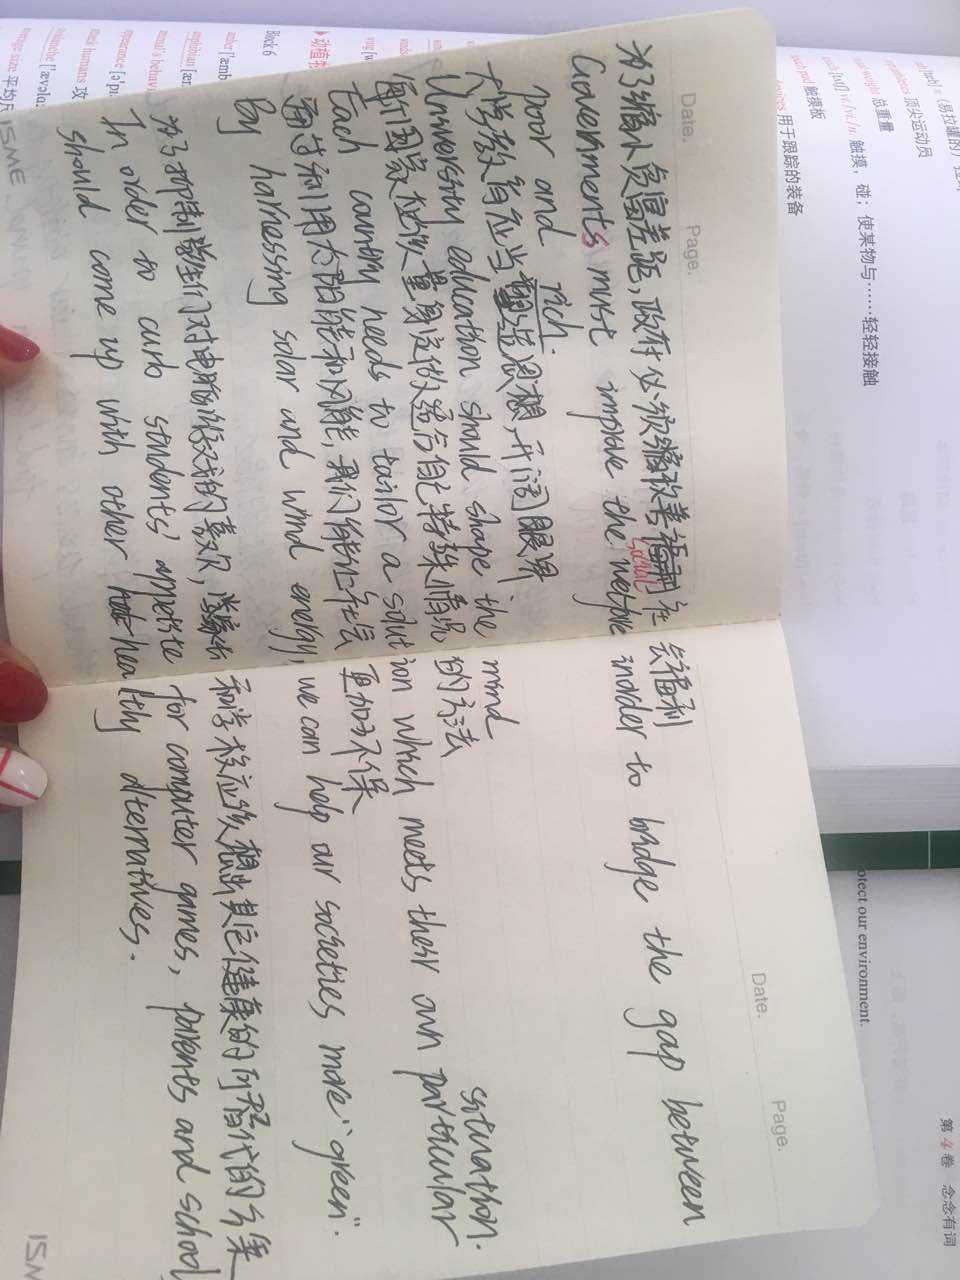 Date. Page.
Date. Page.
为了缩小贫富差距,政府必须改善社会福利
Governments must improve the social welfare inorder to bridge the gap between
poor and rich.
大学教育应当塑造思想,开阔眼界
University education should shape the mind
每个国家应该量身定做适合自己特殊情况的方法 situation.
Each country needs to tailor a solution which meets their own particular
通过利用太阳能和风能,我们能让社会更加环保
By harnessing solar and wind energy, we can help our societies more "green".
为了抑制学生们对电脑游戏的喜欢,家长和学校应该想出其它健康的可替代的方案
In order to curb students' appetite for computer games, parents and school
should come up with other healthy alternatives.
顶尖运动员
总重量
触摸,碰;使某物与……轻轻接触
touch pad 触摸板
用于跟踪的装备
Book 6
otect our environment.
第4卷 念念有词